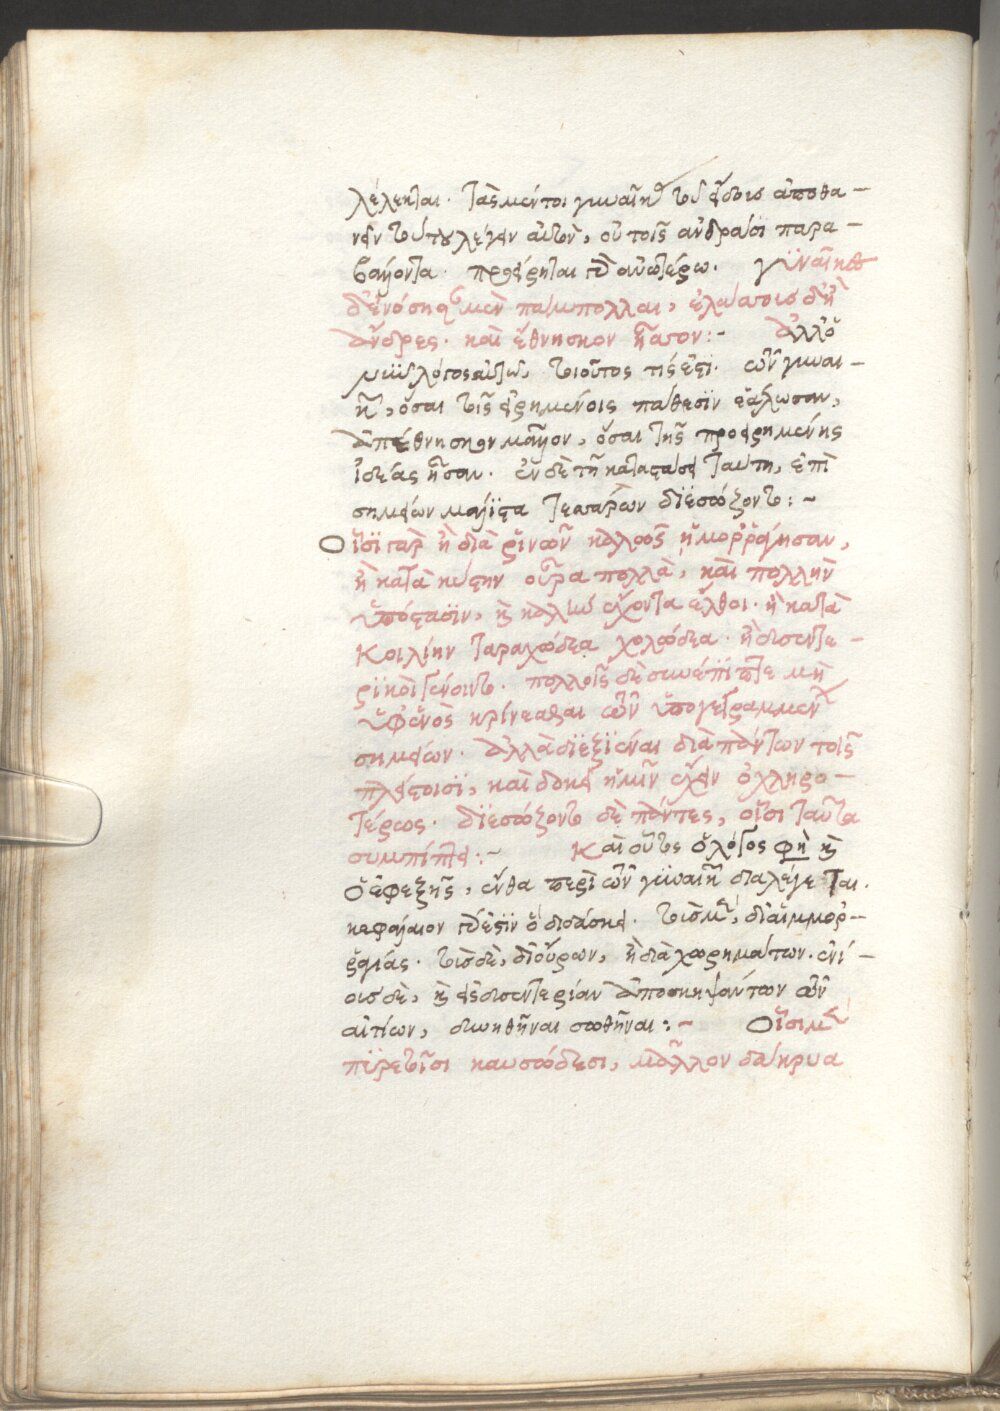 λέλεκται. τὰς μέντοι γυναῖκας τοῖς εἴδεσιν ἀποθα-
νεῖν τούτου λέγειν αὐτὸν, οὐ τοῖς ἀνδράσι παρα-
βάλλοντα. προείρηται τὸ ἀνωτέρω. γυναῖκες
δὲ ἐνόσησαν μὲν πάμπολλαι, ἐλάσσους δὲ ἢ
ἄνδρες. καὶ ἔθνησκον ἧσσον:- ἀλλ' ὁ
μὲν λόγος αὐτῷ, τοιοῦτος τίς ἐστι. τῶν γυναι-
κῶν, ὅσαι τοῖς εἰρημένοις πάθεσιν ἑάλωσαν,
ἀπέθνησκον μᾶλλον, ὅσαι τῆς προειρημένης
ἰδέας ἦσαν. ἐν δὲ τῇ καταστάσει ταύτῃ, ἐπὶ
σημείων μάλιστα τεσσάρων διεσώζοντο:-
Οἷσι γὰρ ἢ διὰ ῥινῶν καλῶς ᾑμορράγησαν,
ἢ κατὰ κύστιν οὖρα πολλὰ, καὶ πολλὴν
ὑπόστασιν, καὶ καλὴν ἔχοντα ἔλθοι. ἢ κατὰ
κοιλίην ταραχώδεα χολώδεα. ἢ δυσεντε-
ρικοὶ γένοιντο. πολλοῖς δὲ συνέπιπτε μὴ
ὑφ' ἑνὸς κρίνεσθαι τῶν ὑπογεγραμμένων
σημείων. ἀλλὰ διεξιέναι διὰ πάντων τοῖς
πλείστοισι, καὶ δοκεῖ ἡμῖν ἔχειν ὀχληρο-
τέρως. διεσώζοντο δὲ πάντες, οἷσι ταῦτα
συμπίπτει:- Καὶ οὗτος ὁ λόγος φη καὶ
ὁ ἐφεξῆς, ἔνθα περὶ τῶν γυναικῶν διαλέγεται.
κεφάλαιον τόδε ἐστὶν ὃ διδάσκει. τοῖς μὲν, δι' αἱμορ-
ραγίας. τοῖς δὲ, δι' οὔρων, ἢ διαχωρημάτων. ἐνί-
οις δὲ, καὶ εἰς δυσεντερίαν ἀποσκηψάντων τῶν
αἰτίων, συνηθῆναι σωθῆναι:- Οἷσι μὲν
πυρετοῖσι καυσώδεσι, μᾶλλον δάκρυα